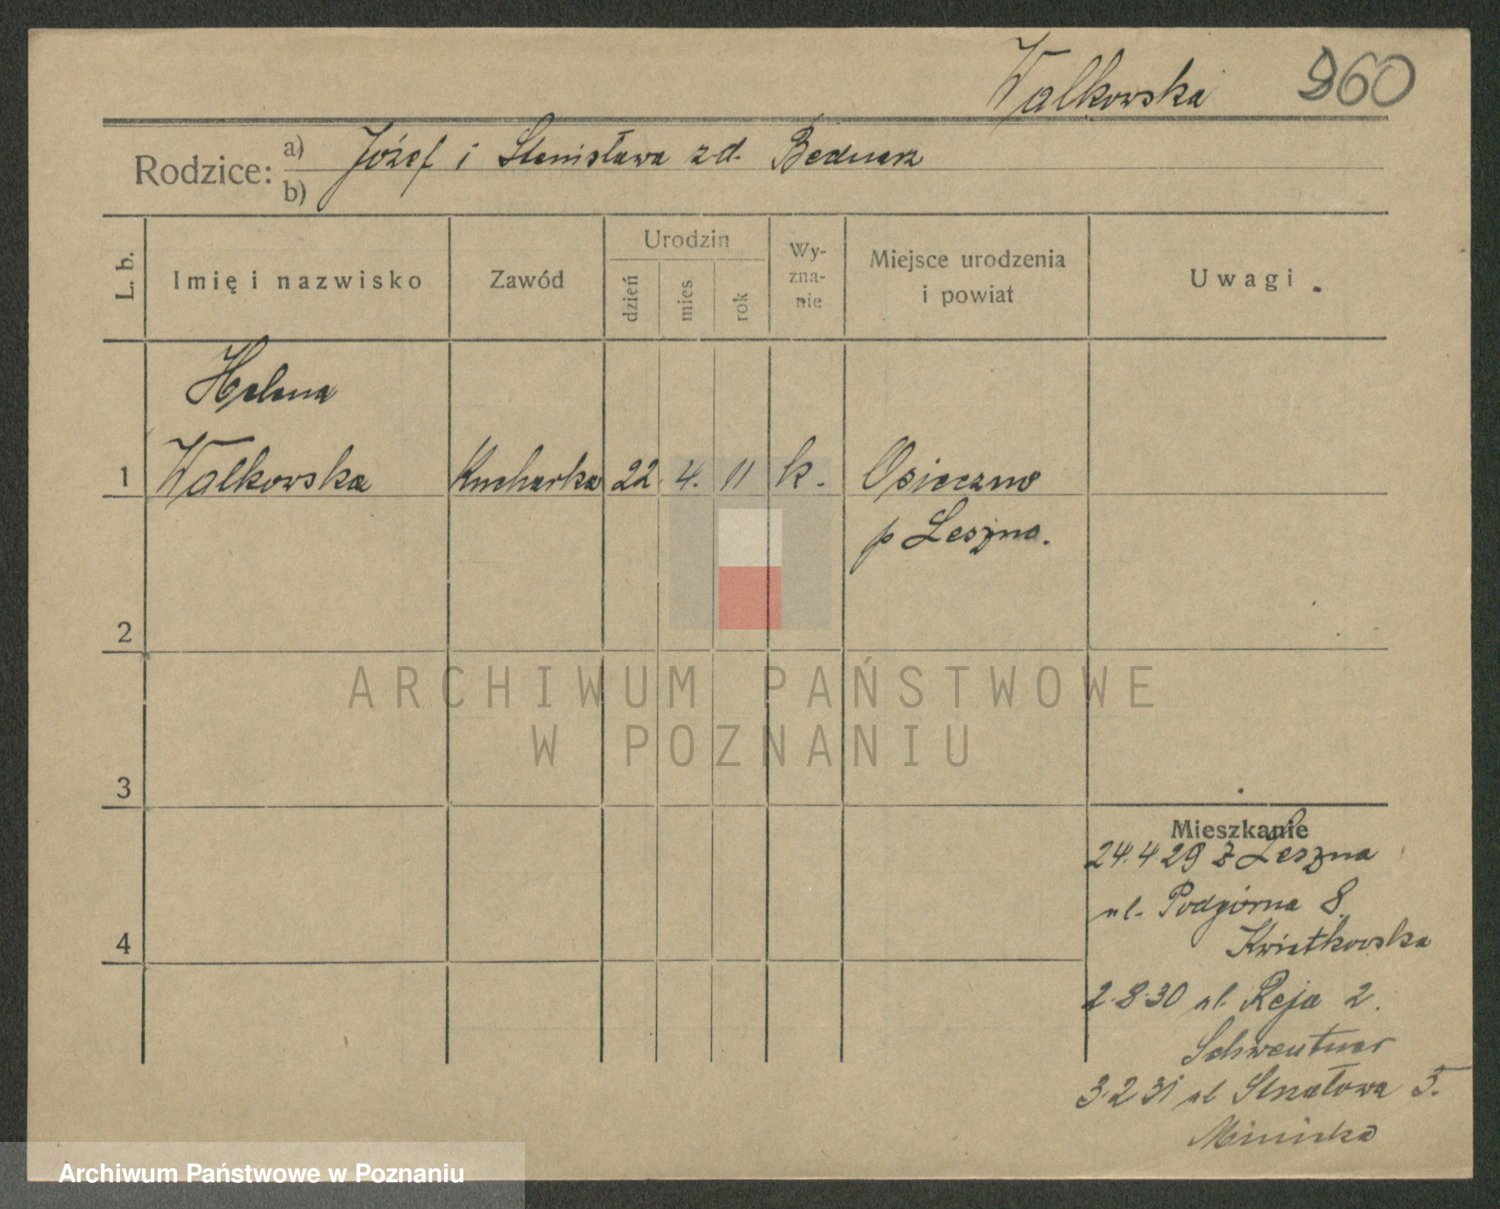 Walkowska 960
Rodzice: a) Józef i Stanisława z d. Bednarz
b)
L. b. Imię i nazwisko Zawód Urodzin dzień mies rok Wy-zna-nie Miejsce urodzenia i powiat Uwagi
Helena
1 Walkowska Kucharka 22. 4. 11 k. Osieczno
p Leszno.
2
ARCHIWUM PAŃSTWOWE
W POZNANIU
3
Mieszkanie
24.4 29 z Leszna
ul. Podgórna 8.
Kwiatkowska
4
2.8.30 ul. Reja 2.
Schwentner
3.2 31 ul 5.
Archiwum Państwowe w Poznaniu